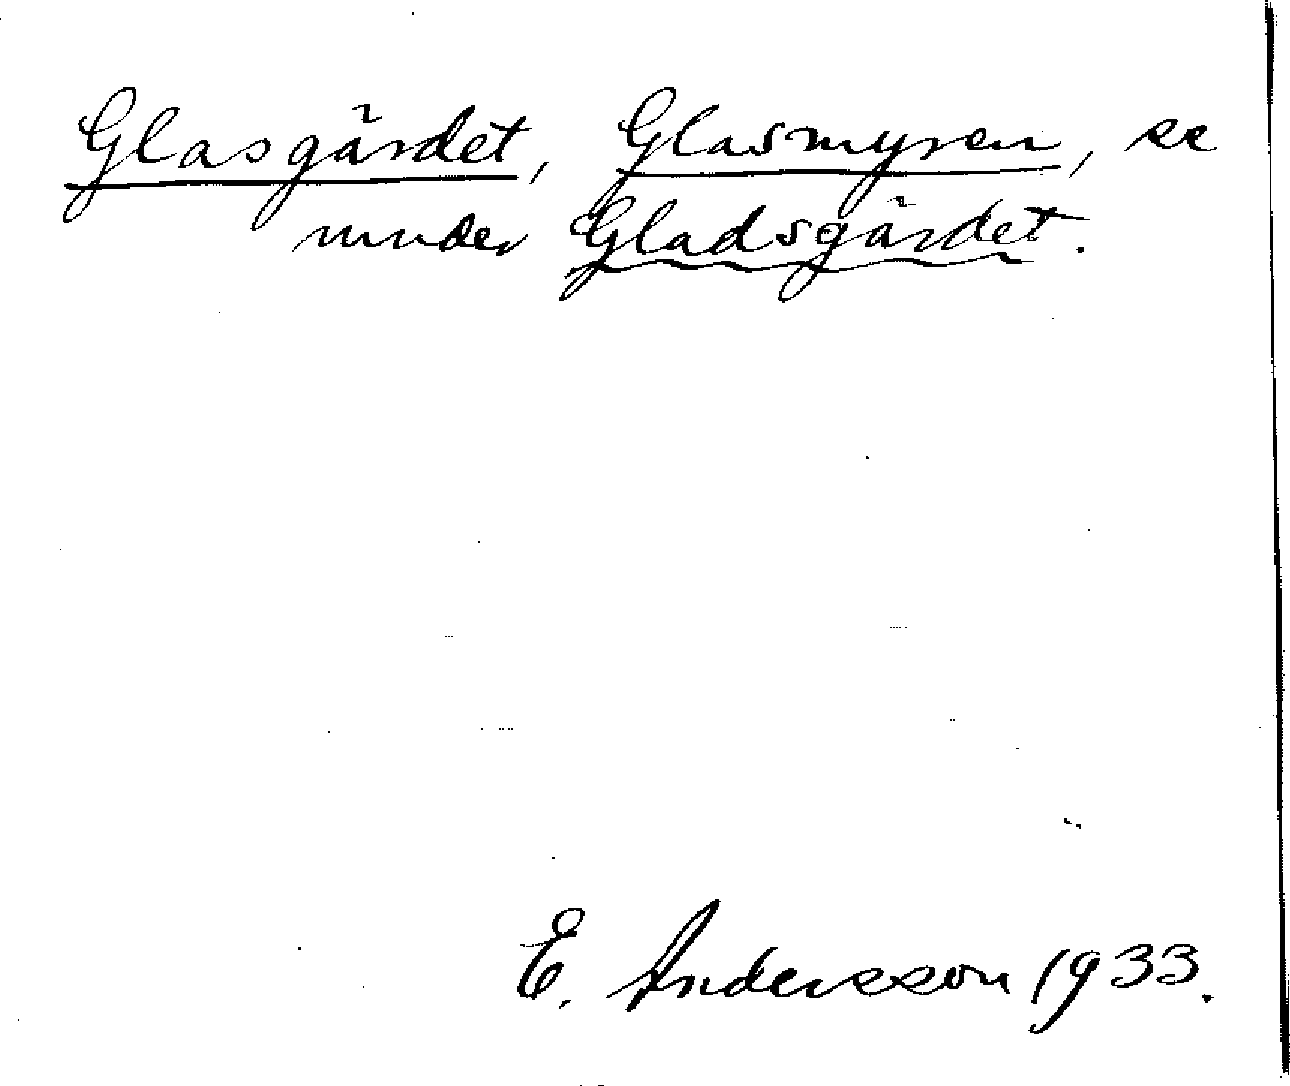 Glasgärdet, Glasmyren, se
under Gladsgärdet.
E. Andersson 1933.